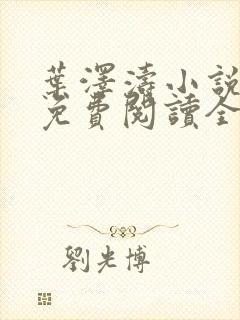 葉澤濤小說
免費閱讀全
劉光博